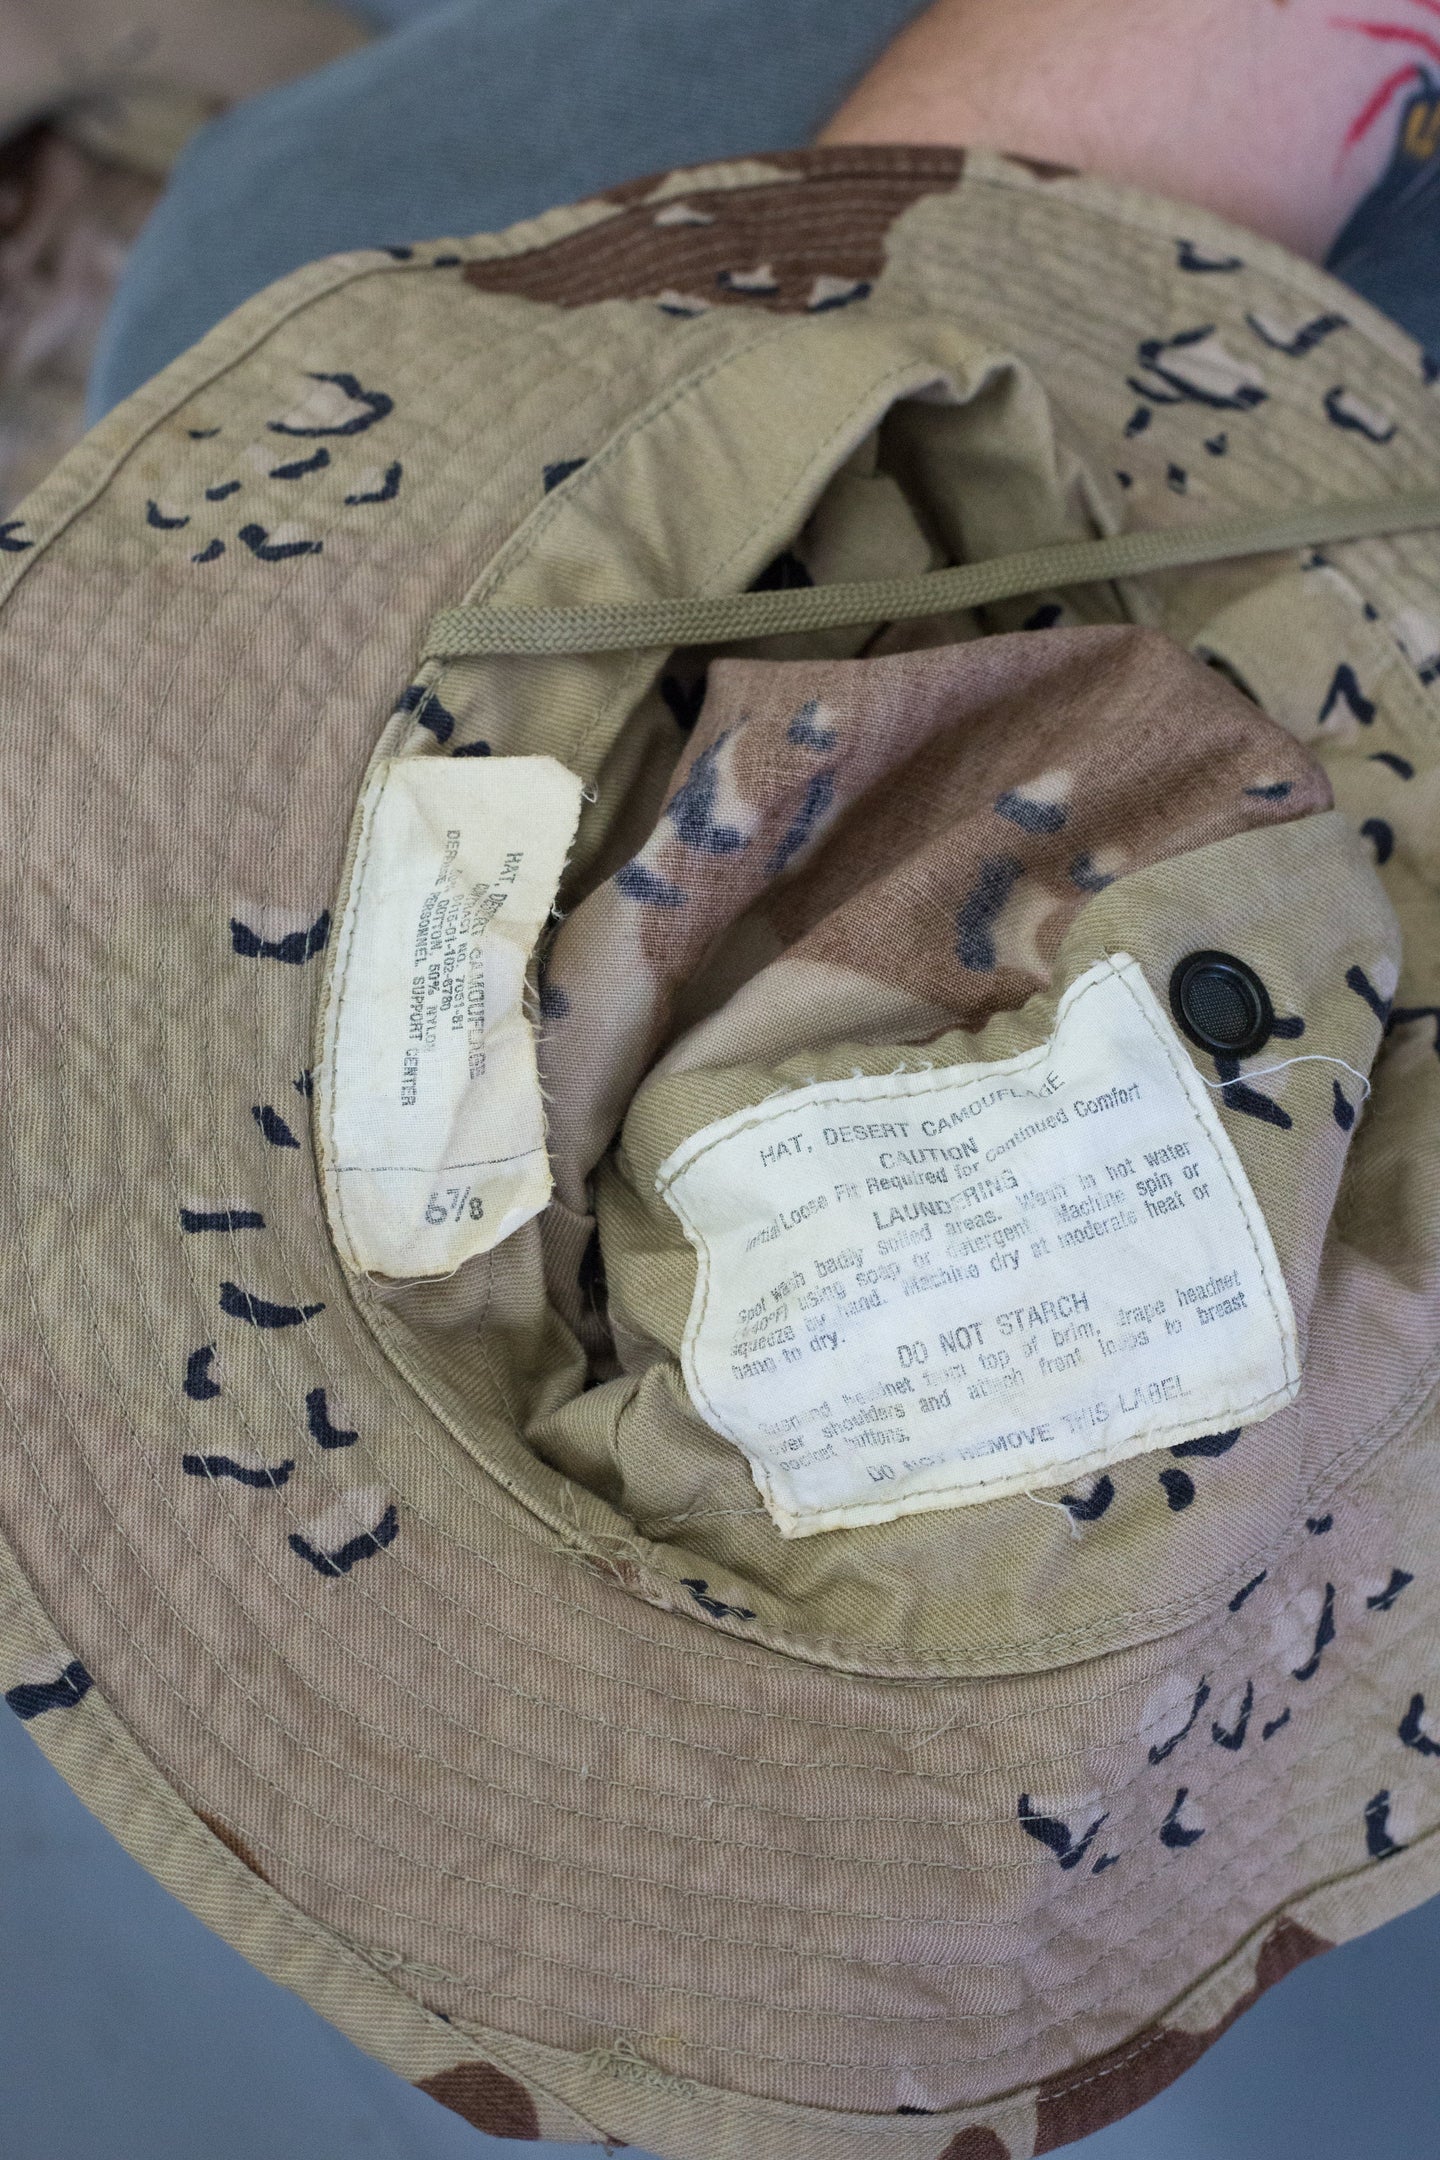 HAT, DESERT CAMOUFLAGE
CONTRACT NO. 7051-81
COTTON, 50% NYLON
PERSONNEL SUPPORT CENTER
6 7/8
HAT, DESERT CAMOUFLAGE
CAUTION
Initial Loose Fit Required for Continued Comfort
LAUNDERING
Spot wash badly soiled areas. Wash in hot water
(140°F) using soap or detergent. Machine spin or
squeeze by hand. Machine dry at moderate heat or
hang to dry.
DO NOT STARCH
Suspend headnet from top of brim, drape headnet
over shoulders and attach front loops to breast
pocket buttons.
DO NOT REMOVE THIS LABEL